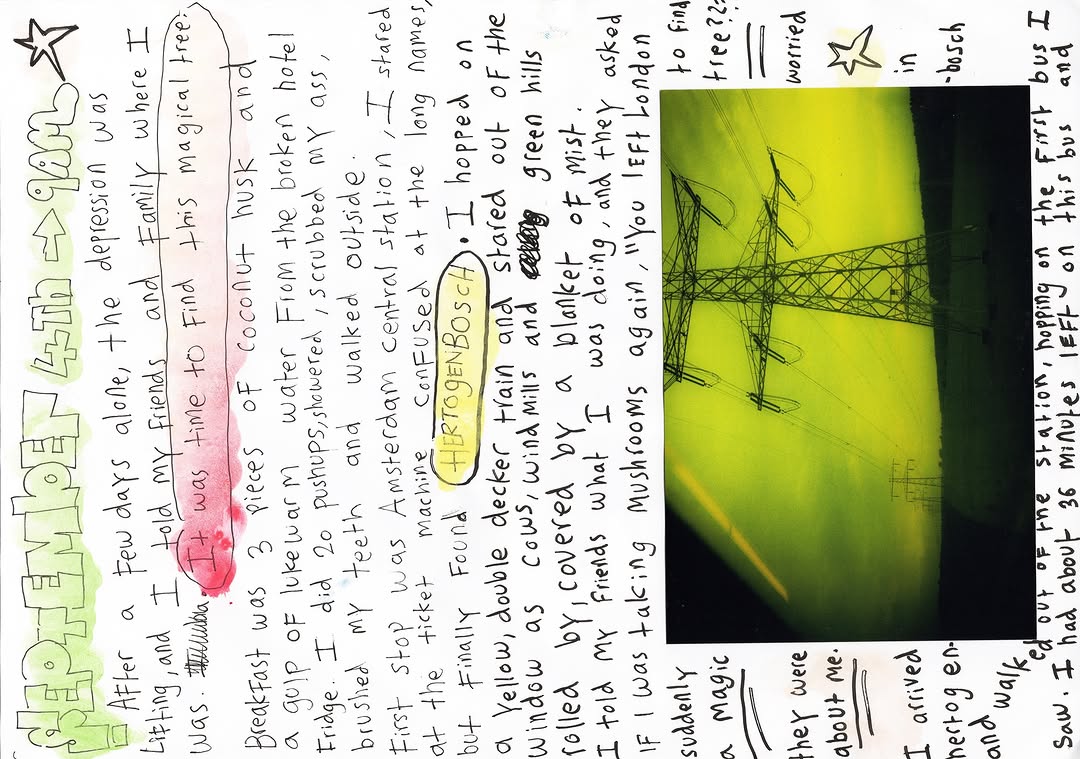 SEPTEMBER 4TH → 9AM
After a few days alone, the depression was
lifting, and I told my friends and family where I
was. It was time to find this magical tree.
Breakfast was 3 pieces of coconut husk and
a gulp of lukewarm water from the broken hotel
fridge. I did 20 pushups, showered, scrubbed my ass,
brushed my teeth and walked outside.
First stop was Amsterdam central station, I stared
at the ticket machine confused at the long names,
but finally found HERTOGENBOSCH. I hopped on
a yellow, double decker train and stared out of the
window as cows, windmills and green hills
rolled by, covered by a blanket of mist.
I told my friends what I was doing, and they asked
if I was taking mushrooms again, "you left London
suddenly to find
a magic tree???
they were worried
about me.
I arrived in
hertogen-bosch
and walked out of the station, hopping on the first bus I
saw. I had about 36 minutes left on this bus and